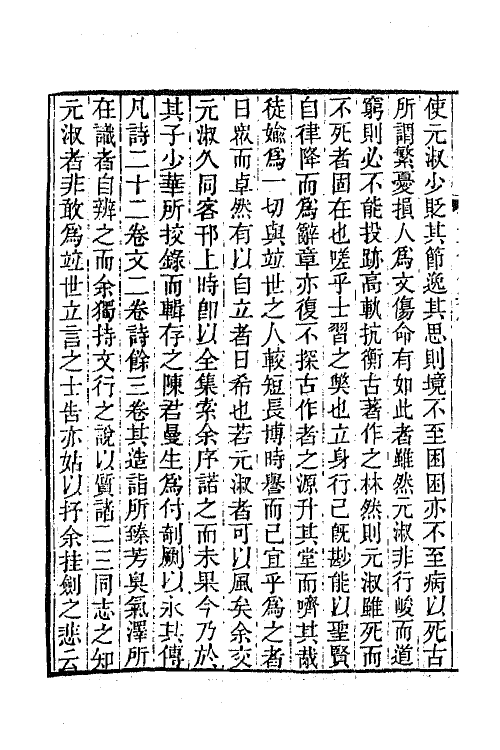 使元淑少貶其節逸其思則境不至困困亦不至病以死古
所謂繁憂損人為文傷命有如此者雖然元淑非行峻而道
窮則必不能投跡高軌抗衡古著作之林然則元淑雖死而
不死者固在也嗟乎士習之獘也立身行己旣尠能以聖賢
自律降而為辭章亦復不探古作者之源升其堂而嚌其胾
徒婾為一切與竝世之人較短長博時譽而已宜乎為之者
日衆而卓然有以自立者日希也若元淑者可以風矣余交
元淑久同客邗上時卽以全集索余序諾之而未果今乃於
其子少華所挍錄而輯存之陳君曼生為付剞劂以永其傳
凡詩二十二卷文二卷詩餘三卷其造詣所臻芳臭氣澤所
在識者自辨之而余獨持文行之說以質諸二三同志之知
元淑者非敢為竝世立言之士告亦姑以抒余挂劍之悲云